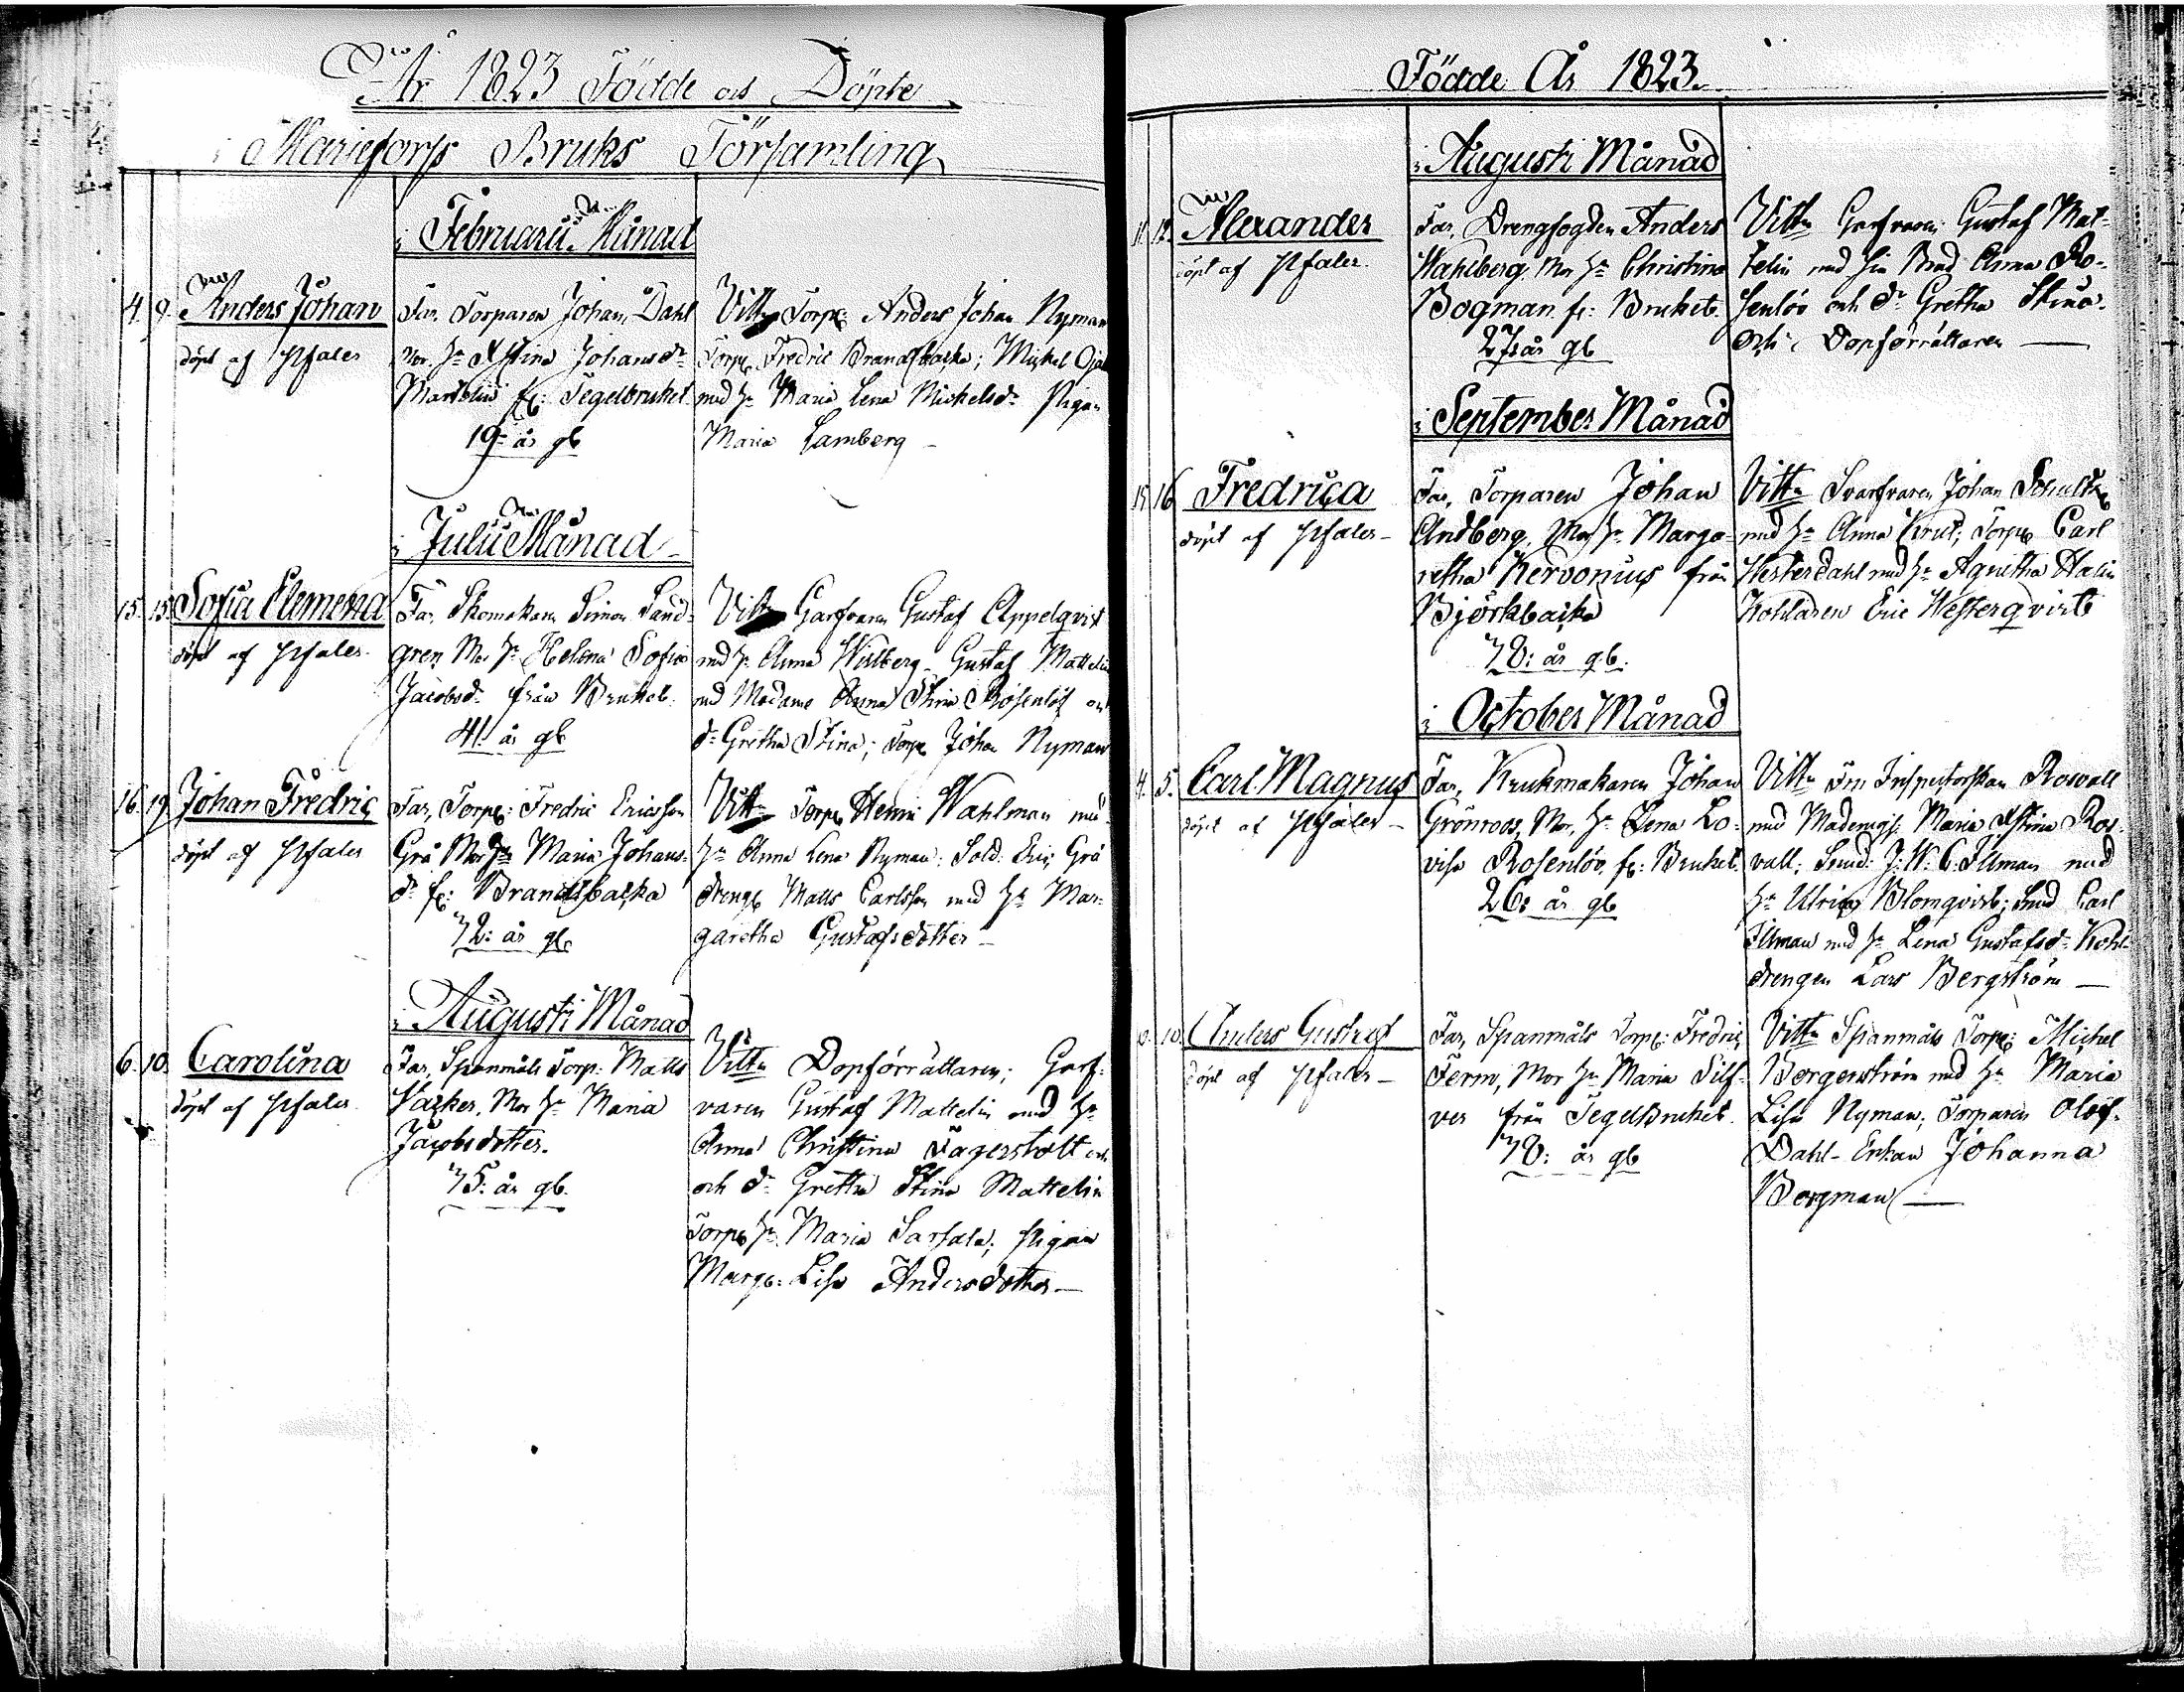 År 1823 Födde och Döpte
i Mariefors Bruks Församling
i Februarii Månad
4. 9. Anders Johan
döpt af Pfaler
Far, Torparen Johan Dahl
Mor, Hu Xstina Johansdr
Martelin fr: Tegelbruket
19: år gl
Vittn Torp: Anders Johan Nyman
Torp: Fredric Brandtbacka; Mickel
med Hu Maria Lena Mickelsdr Pigan
Maria Lamberg –
i Julii Månad
15. 15. Sofia Clemena
döpt af Pfaler
Far, Skomakaren Simon Sand-
gren, Mor Hu Helena Sofia
Jacobsdr från Bruket.
41: år gl
Vittn Garfvaren Gustaf Appelqvist
med Hu Anna Wilberg – Gustaf Mattelin
med Madame Anna Stina Rosenlöf och
dr Gretha Stina; Torp: Johan Nyman
16. 19. Johan Fredric
döpt af Pfaler
Far, Torp: Fredric Ericsson
Grå Mor Hu Maria Johans-
dr fr: Brandtbacka
32: år gl
Vittn Torp: Henric Wahlman med
Hu Anna Lena Nyman; Sold: Eric Grå
dreng: Matts Carlsson med Hu Mar-
garetha Gustafsdotter –
i Augusti Månad
6. 10. Carolina
döpt af Pfaler
Far, Spanmåls Torp: Matts
Wacker, Mor Hu Maria
Jacobsdotter.
35: år gl.
Vittn Dopförrättaren; Garf-
varen Gustaf Mattelin med Hu
Anna Christina Fagerstolt och
och dr Gretha Stina Mattelin
Torp: Hu Maria Sarsala; Pigan
Marg: Lisa Andersdotter –
Födde År 1823.
i Augusti Månad
11. 12. Alexander
döpt af Pfaler.
Far, Drengfogden Anders
Wahlberg, Mor Hu Christina
Bogman fr: Bruket.
27: år gl
Vittn Garfvaren Gustaf Mat-
telin med sin Anna Ro-
senlöv och dr Gretha Stina
och Dopförrättaren —
i September Månad
15 16 Fredrica
döpt af Pfaler –
Far, Torparen Johan
Andberg, Mor Hu Marga-
retha Nervonius från
Björkbacka
38: år gl.
Vittn Svarfvaren Johan Schultz
med Hu Anna Krut; Torp: Carl
Westerdahl med Hu Agnetha Halin
Kohlaren Eric Westerqvist
i October Månad
4. 5. Carl Magnus
döpt af Pfaler –
Far, Krukmakaren Johan
Grönroos, Mor, Hu Lena Lo-
visa Rosenlöv, fr: Bruket.
26: år gl
Vittn Fru Inspectorskan Roswall
med Mademois: Maria Xstina Ros-
vall; Smed: J: W: C. Illman med
Hu Ulrica Blomqvist; Smed Carl
Illman med Hu Lena Gustafsdr Kohl-
drengen Lars Bergström —
10. Anders Gustaf
döpt af Pfaler –
Far, Spanmåls Torp: Fredric
Ferm, Mor Hu Maria Silf-
ver från Tegelbruket.
38: år gl
Vittn Spanmåls Torp: Michel
Borgerström med Hu Maria
Lisa Nyman; Torparen Olof
Dahl – Enkan Johanna
Borgman —